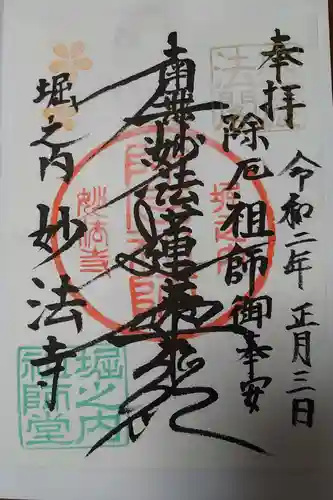 奉拝
令和二年 正月三日
除厄祖師御奉安
南無妙法蓮華経
堀之内 妙法寺
堀之内
妙法寺
堀之内
祖師堂